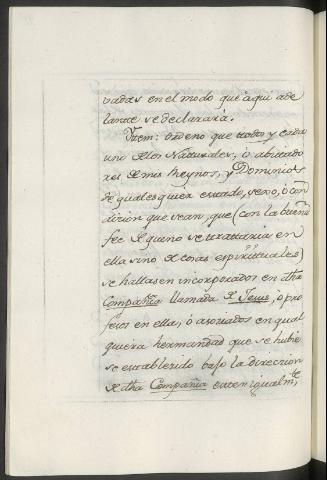 vadas en el modo que aqui ade
lante se declarará.
Ytem: ordeno que todo y cada
uno de los Naturales, ó abitado
res de mis Reynos, y Dominios
de qualesquiera estado, sexo, ó con
dicion que sean, que (con la buena
fee de que no se trataria en
ella sino de cosas espirituales)
se hallasen incorporados en dha
Compañia llamada de Jesus, ó pro
fesos en ella, ó asociados en qual
quiera hermandad que se hubie
se establezido bajo la direccion
de dha Compañia esten igualmte